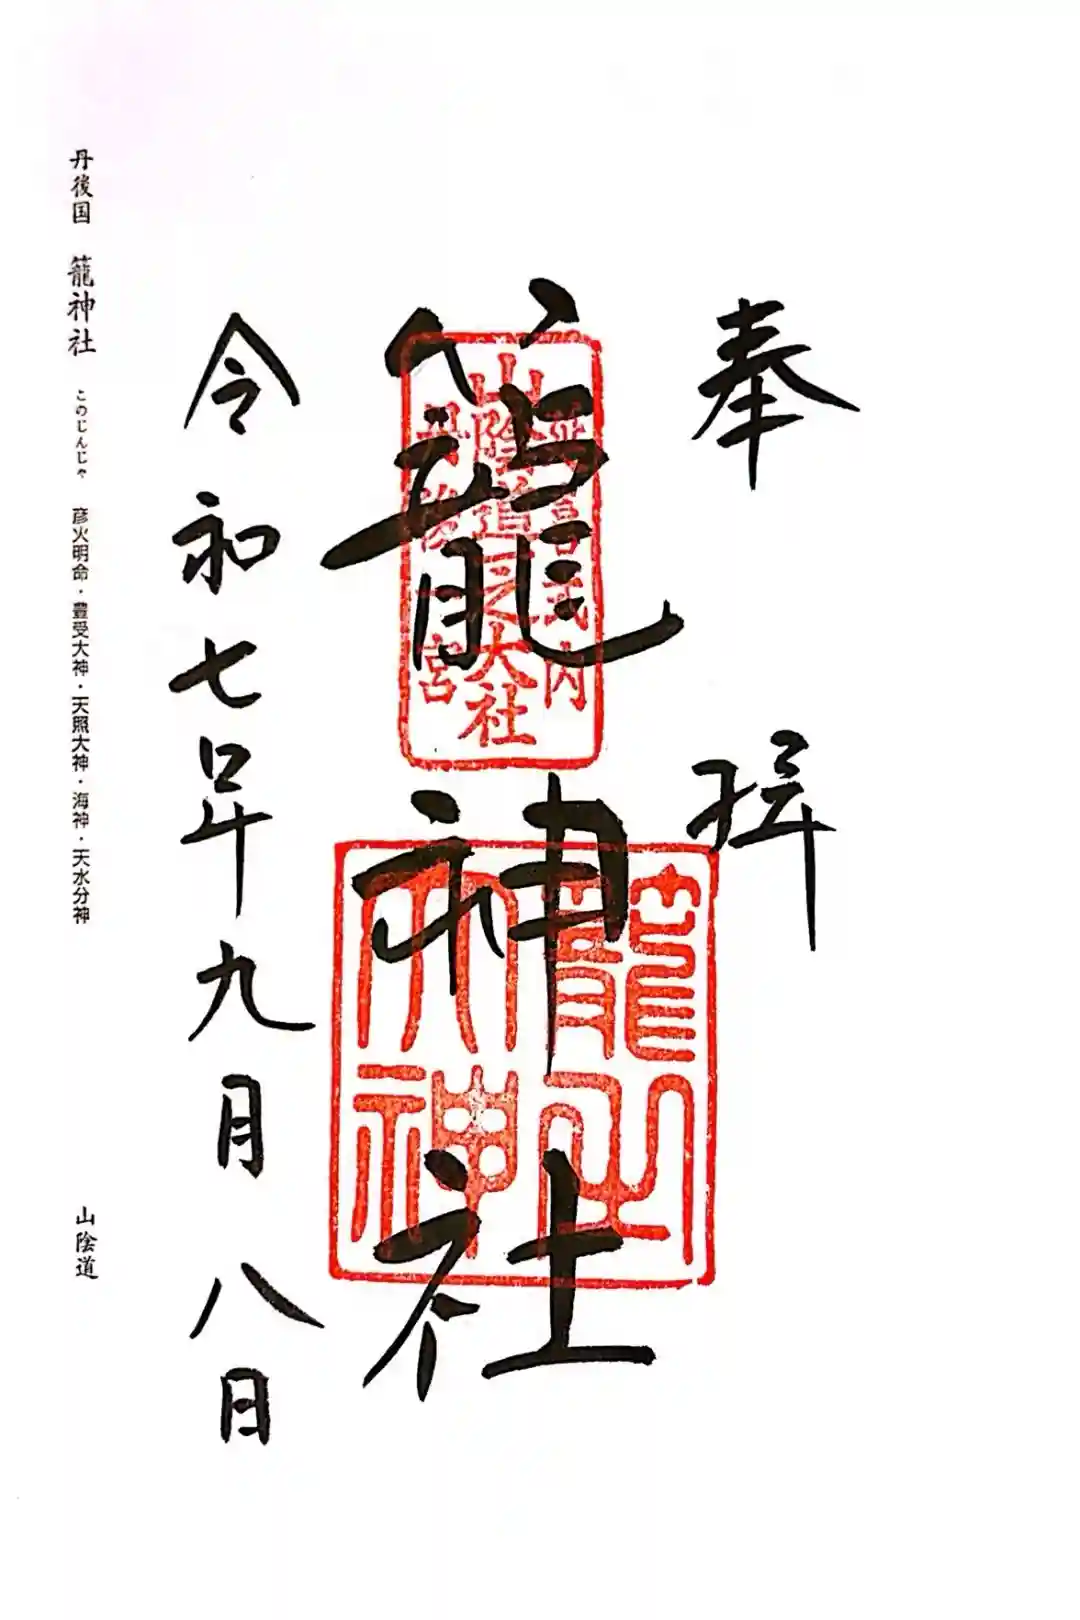 奉拝
延喜式内
山陰道之大社
丹後一宮
籠神社
籠之大神
令和七年九月八日
丹後国 籠神社 このじんじゃ 彦火明命・豊受大神・天照大神・海神・天水分神 山陰道